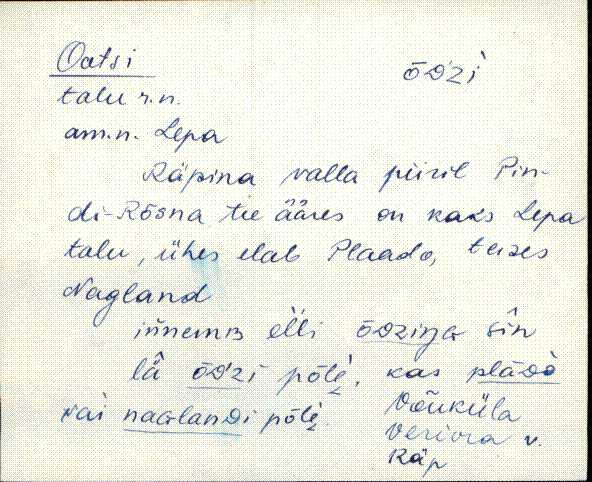 Oatsi ōᴅ'zì
talu r.n.
am.n. Lepa
Räpina valla piiril Pin-
di-Rõsna tee ääres on kaks Lepa
talu, ühes elab Plaado, teises
Nagland
innemʙ èlli ōᴅziŋɢ sîn
lâ ōᴅ'zì põlè, kas plādò
vai naɢlanᴅi põlè.
Võuküla
Veriora v.
Räp